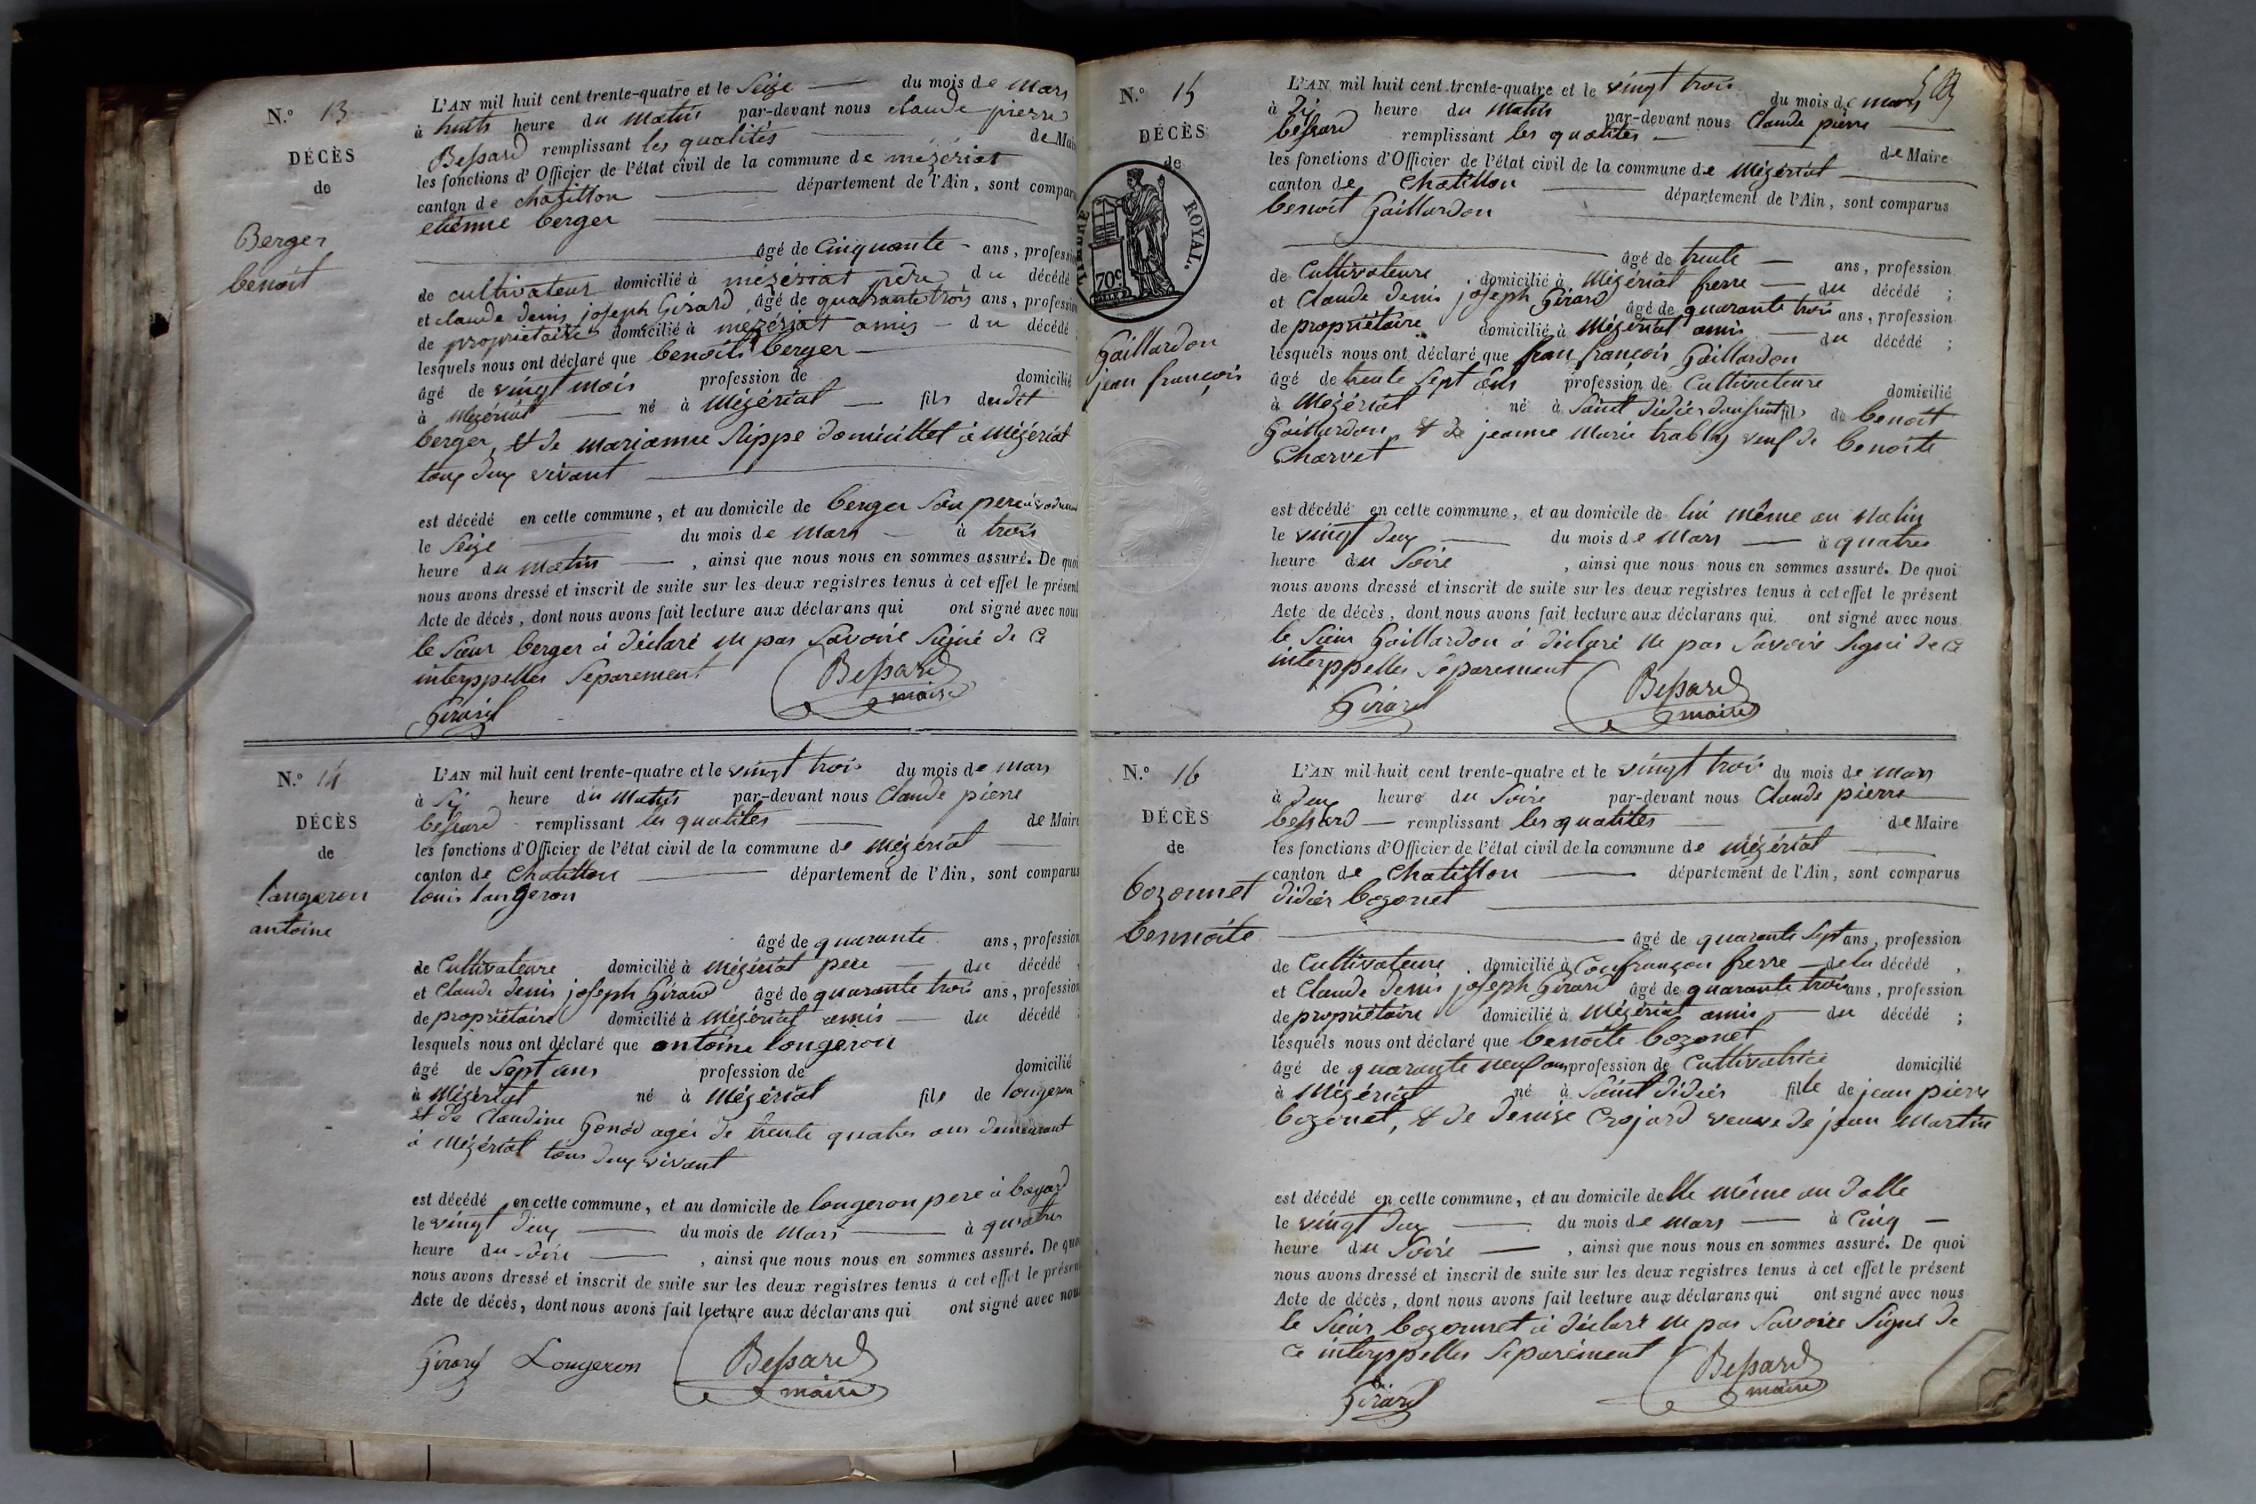 N.º 13
DÉCÈS
de
Berger
benoit
L'AN mil huit cent trente-quatre et le Seize du mois de Mars
à huits heure du Matin par-devant nous claude pierre
Bessard remplissant les qualités de Maire
les fonctions d'Officier de l'état civil de la commune de mézériat
canton de chatillon département de l'Ain, sont comparus
etienne berger
âgé de Cinquante ans, profession
de cultivateur domicilié à mézériat père du décédé
et claude denis joseph Girard âgé de quarante trois ans, profession
de propriétaire domicilié à mézériat amis du décédé
lesquels nous ont déclaré que benoits berger
âgé de vingt mois profession de domicilié
à Mézériat né à Mézériat fils dudit
berger, et de marianne Rippe domicilliet à Mézériat
tous deux vivant
est décédé en cette commune, et au domicile de berger Son pere
le Seize du mois de Mars à trois
heure du Matin, ainsi que nous nous en sommes assuré. De quoi
nous avons dressé et inscrit de suite sur les deux registres tenus à cet effet le présent
Acte de décès, dont nous avons fait lecture aux déclarans qui ont signé avec nous
le Sieur berger à déclaré ne pas Savoire Signé de Ce
interppelles Separement
Girard Bessard
maire
N.º 14
DÉCÈS
de
langeron
antoine
L'AN mil huit cent trente-quatre et le vingt trois du mois de Mars
à Six heure du Matin par-devant nous Claude pierre
bessard remplissant les qualités de Maire
les fonctions d'Officier de l'état civil de la commune de Mézériat
canton de Chatillon département de l'Ain, sont comparus
louis langeron
âgé de quarante ans, profession
de Cultivateure domicilié à Mézériat pere du décédé
et Claude denis joseph Girard âgé de quarante trois ans, profession
de propriétaire domicilié à Mézériat amis du décédé ;
lesquels nous ont déclaré que antoine longeron
âgé de Sept ans profession de domicilié
à Mézériat né à Mézériat fils de longeron
et de Claudine Genod agée de trente quatres ans demeurant
à Mézériat tous deux vivant
est décédé en cette commune, et au domicile de longeron pere à bayard
le vingt deux du mois de Mars à quatres
heure du Soire, ainsi que nous nous en sommes assuré. De quoi
nous avons dressé et inscrit de suite sur les deux registres tenus à cet effet le présent
Acte de décès, dont nous avons fait lecture aux déclarans qui ont signé avec nous
Girard Longeron Bessard
maire
N.º 15
DÉCÈS
de
TIMBRE ROYAL.
70c
Gaillardon
jean françois
L'AN mil huit cent trente-quatre et le vingt trois du mois de mars
à dix heure du Matin par-devant nous Claude pierre
bessard remplissant les qualités de Maire
les fonctions d'Officier de l'état civil de la commune de Mézériat
canton de Chatillon département de l'Ain, sont comparus
benoit Gaillardon
âgé de trente ans, profession
de Cultivateure domicilié à Mézériat frerre du décédé ;
et Claude denis joseph Girard âgé de quarante trois ans, profession
de propriétaire domicilié à Mézériat amis du décédé ;
lesquels nous ont déclaré que jean françois Gaillardon
âgé de trente Sept ans profession de Cultivateure domicilié
à Mézériat né à Saint didier fils de benoit
Gaillardon, et de jeanne Marie trably veuf de benoite
Charvet
est décédé en cette commune, et au domicile de lui même au Matin
le vingt deux du mois de Mars à quatres
heure du Soire, ainsi que nous nous en sommes assuré. De quoi
nous avons dressé et inscrit de suite sur les deux registres tenus à cet effet le présent
Acte de décès, dont nous avons fait lecture aux déclarans qui ont signé avec nous
le Sieur Gaillardon à déclaré ne pas Savoire Signé de Ce
interppelles Séparement
Girard Bessard
maire
N.º 16
DÉCÈS
de
bozonnet
bennoite
L'AN mil huit cent trente-quatre et le vingt trois du mois de Mars
à deux heure du Soire par-devant nous Claude pierre
bessard remplissant les qualités de Maire
les fonctions d'Officier de l'état civil de la commune de Mézériat
canton de Chatillon département de l'Ain, sont comparus
didier bozonet
âgé de quarante Sept ans, profession
de Cultivateure domicilié à Confrançon frerre de la décédé ,
et Claude denis joseph Girard âgé de quarante trois ans, profession
de propriétaire domicilié à Mézériat amis du décédé ;
lesquels nous ont déclaré que benoite bozonet
âgé de quarante neuf ans profession de Cultivatrice domicilié
à Mézériat né à Saint didier fille de jean pierre
bozonet, et de denise Crojard veuve de jean Martin
est décédé en cette commune, et au domicile delle même au dalle
le vingt deux du mois de mars à Cinq
heure du Soire, ainsi que nous nous en sommes assuré. De quoi
nous avons dressé et inscrit de suite sur les deux registres tenus à cet effet le présent
Acte de décès, dont nous avons fait lecture aux déclarans qui ont signé avec nous
le Sieur bozonnet à déclaré ne pas Savoire Signé de
Ce interppelles Séparément
Girard Bessard
maire